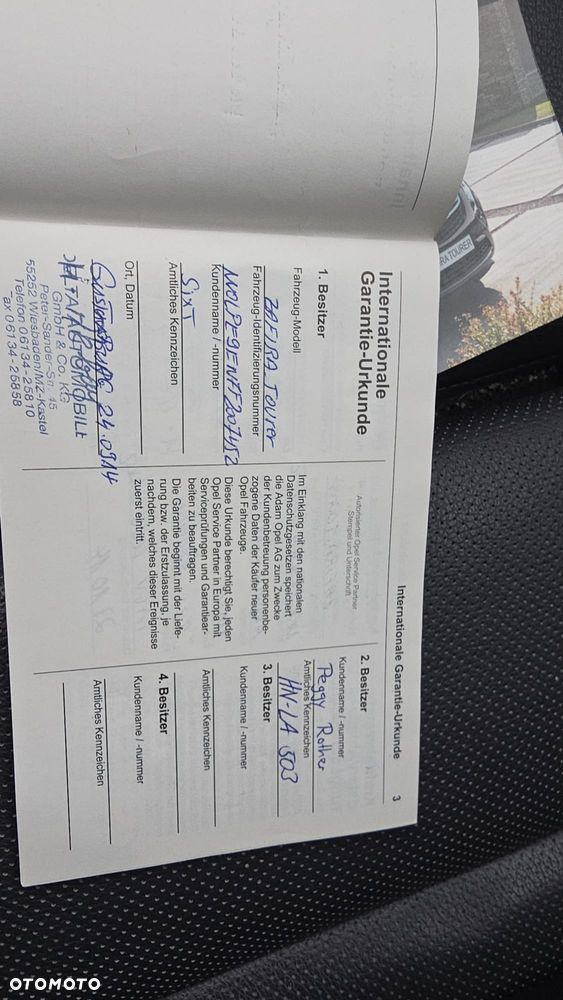 Internationale Garantie-Urkunde 3
Internationale
Garantie-Urkunde
1. Besitzer
Fahrzeug-Modell
ZAFIRA Tourer
Fahrzeug-Identifizierungsnummer
Kundenname / -nummer
Sixt
Amtliches Kennzeichen
Ort, Datum
Gustavsburg 24.0914
GmbH & Co. KG
Peter-Sander-Str. 45
55252 Wiesbaden/MZ-Kastel
Telefon 06134-25810
ax 06134-25858
Autorisierter Opel Service Partner
Stempel und Unterschrift
Im Einklang mit den nationalen
Datenschutzgesetzen speichert
die Adam Opel AG zum Zwecke
der Kundenbetreuung personenbe-
zogene Daten der Käufer neuer
Opel Fahrzeuge.
Diese Urkunde berechtigt Sie, jeden
Opel Service Partner in Europa mit
Serviceprüfungen und Garantiear-
beiten zu beauftragen.
Die Garantie beginnt mit der Liefe-
rung bzw. der Erstzulassung, je
nachdem, welches dieser Ereignisse
zuerst eintritt.
2. Besitzer
Kundenname / -nummer
Peggy Rother
Amtliches Kennzeichen
HN-LA 503
3. Besitzer
Kundenname / -nummer
Amtliches Kennzeichen
4. Besitzer
Kundenname / -nummer
Amtliches Kennzeichen
RA TOURER
OTOMOTO